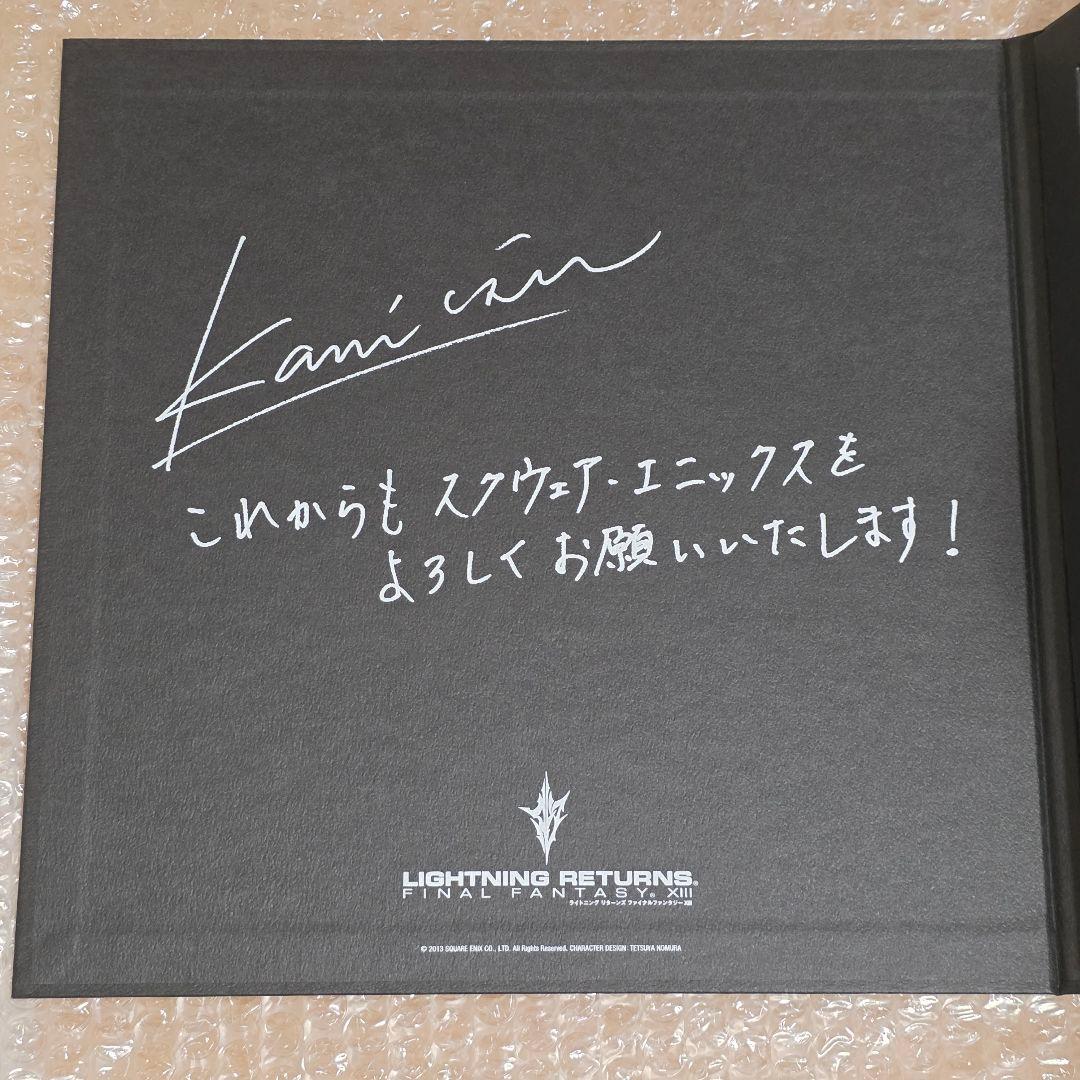 Kami
これからも スクウェア・エニックスを
よろしく お願いいたします！
LIGHTNING RETURNS®
FINAL FANTASY® XIII
ライトニング リターンズ ファイナルファンタジーXIII
© 2013 SQUARE ENIX CO., LTD. All Rights Reserved. CHARACTER DESIGN : TETSUYA NOMURA